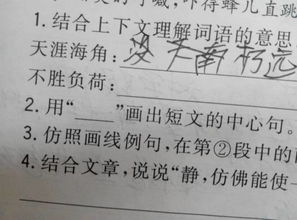 ，吓得蜂儿直跳
1. 结合上下文理解词语的意思
天涯海角：
不胜负荷：
2. 用“____”画出短文的中心句。
3. 仿照画线例句，在第②段中的
4. 结合文章，说说“静，仿佛能使一